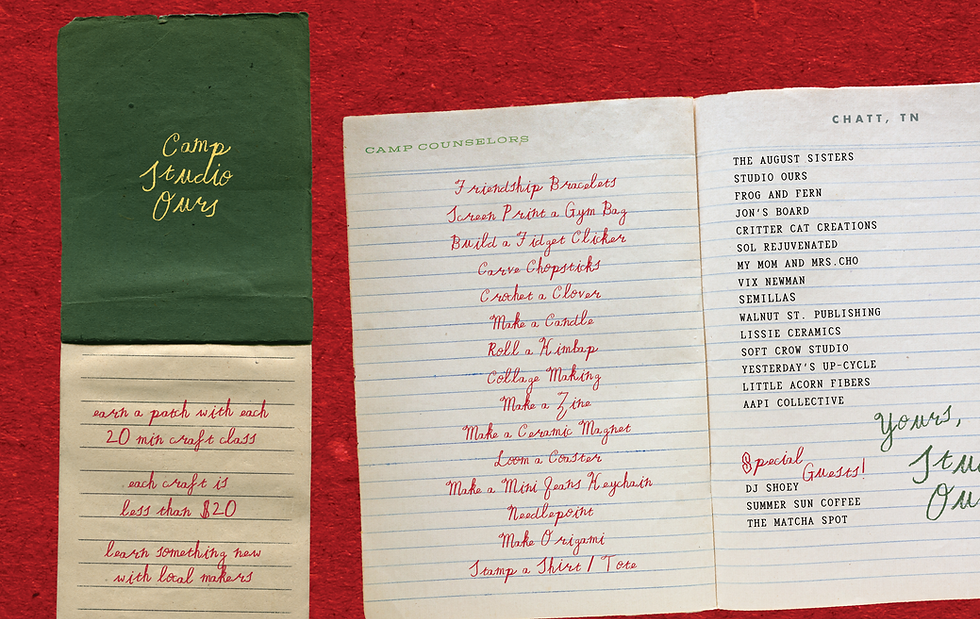 Camp
Studio
Ours
earn a patch with each
20 min craft class
each craft is
less than $20
learn something new
with local makers
CAMP COUNSELORS
Friendship Bracelets
Screen Print a Gym Bag
Build a Fidget Clicker
Carve Chopsticks
Crochet a Clover
Make a Candle
Roll a Kimbap
Collage Making
Make a Zine
Make a Ceramic Magnet
Loom a Coaster
Make a Mini Jeans Keychain
Needlepoint
Make Origami
Stamp a Shirt / Tote
CHATT, TN
THE AUGUST SISTERS
STUDIO OURS
FROG AND FERN
JON'S BOARD
CRITTER CAT CREATIONS
SOL REJUVENATED
MY MOM AND MRS.CHO
VIX NEWMAN
SEMILLAS
WALNUT ST. PUBLISHING
LISSIE CERAMICS
SOFT CROW STUDIO
YESTERDAY'S UP-CYCLE
LITTLE ACORN FIBERS
AAPI COLLECTIVE
Special
Guests!
DJ SHOEY
SUMMER SUN COFFEE
THE MATCHA SPOT
Yours,